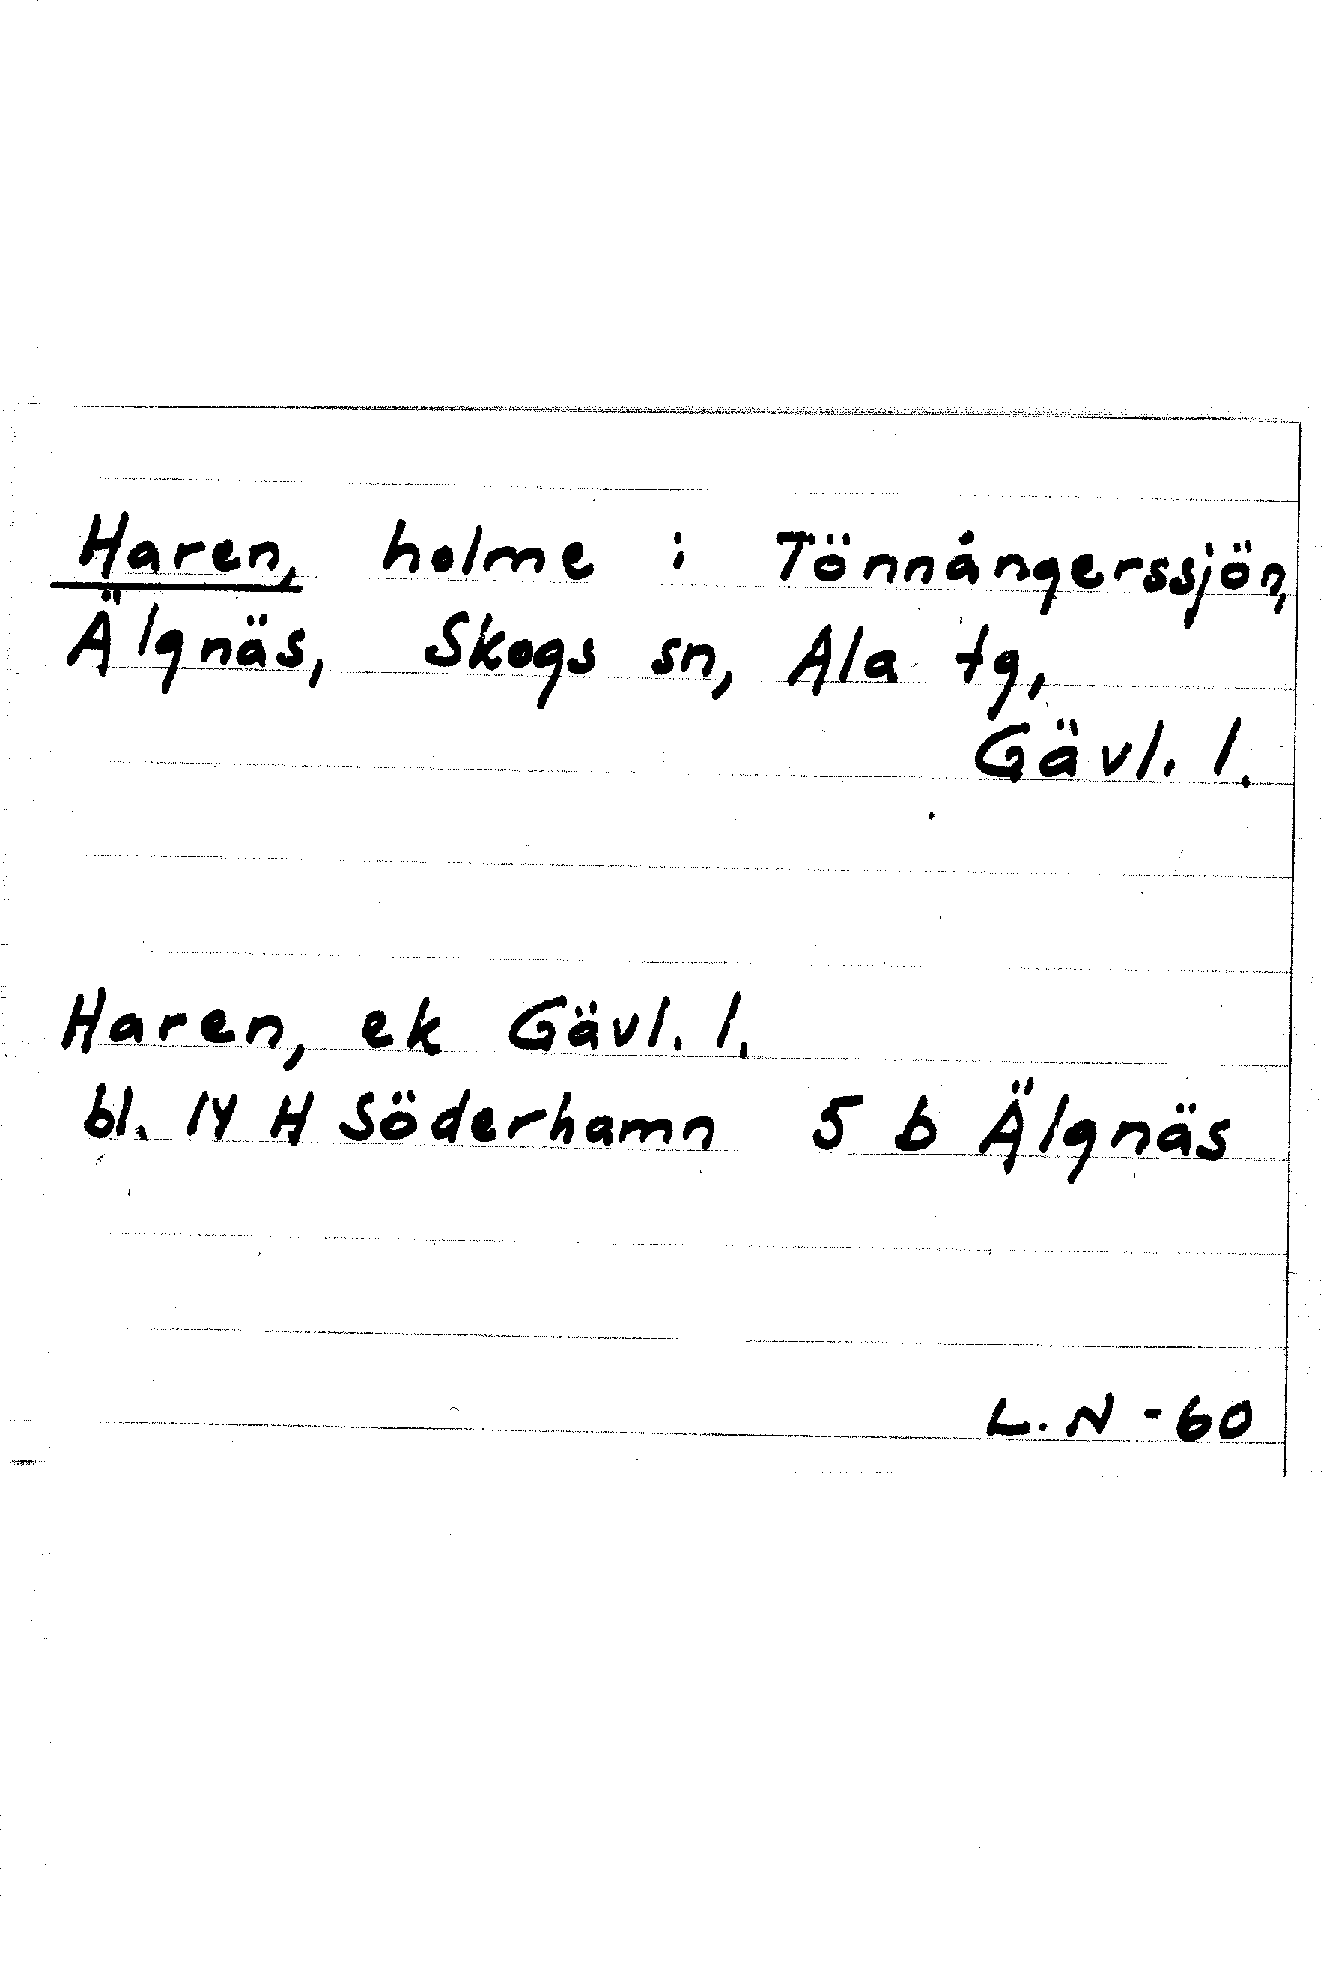 Haren, holme i Tönnångerssjön,
Älgnäs, Skogs sn, Ala tg,
Gävl. l.
Haren, ek Gävl. l.
bl. 14 H Söderhamn 5 b Älgnäs
L. N - 60